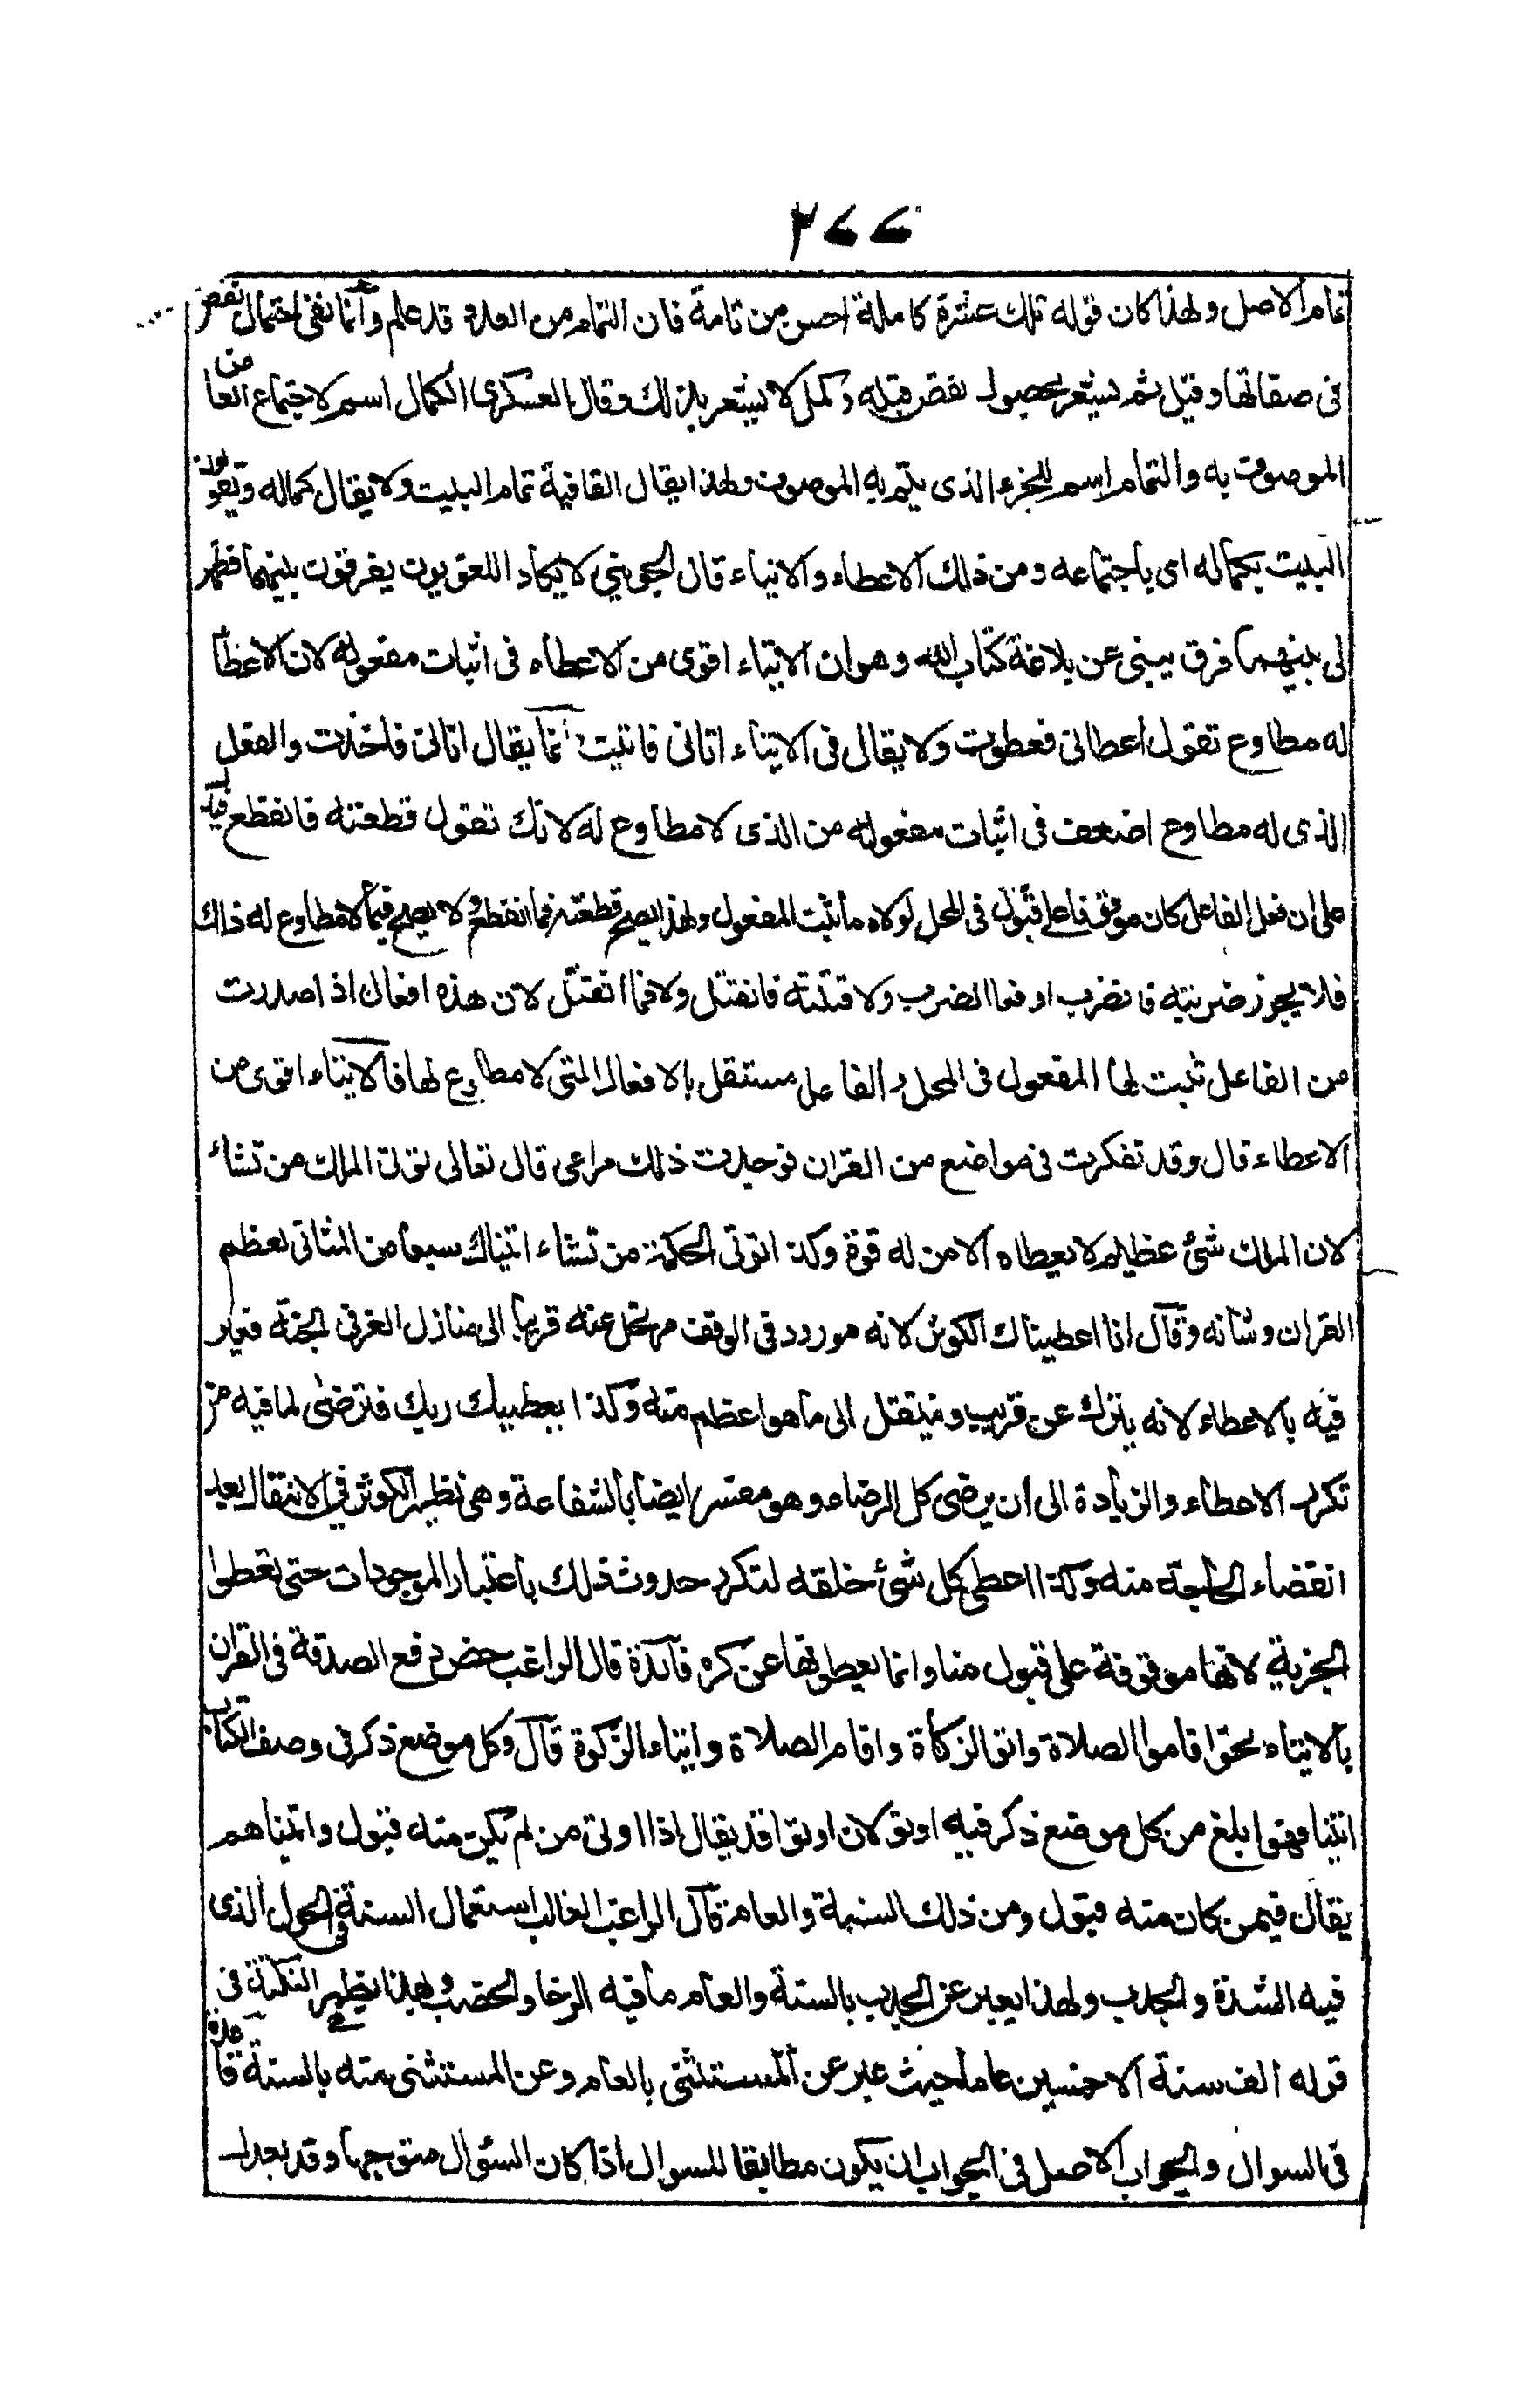 ٢٧٧
تمام الاصل ولهذا كان قوله تلك عشرة كاملة احسن من تامة فان التمام من العدد قد علم وانما نفى احتمال نقص
فى صفاتها وقيل تم يشعر بحصول نقص قبله وكمل لا يشعر بذلك وقال العسكرى الكمال اسم لاجتماع ابعاض
الموصوف به والتمام اسم للجزء الذى يتم به الموصوف ولهذا يقال القافية تمام البيت ولا يقال كماله ويقولون
البيت بكماله اى باجتماعه ومن ذلك الاعطاء والايتاء قال الجوينى لا يكاد اللغويون يفرقون بينهما فظهر
لى بينهما فرق ينبئ عن بلاغة كتاب الله وهو ان الايتاء اقوى من الاعطاء فى اثبات مفعوله لان الاعطا
له مطاوع تقول اعطانى فعطوت ولا يقال فى الايتاء اتانى فاتيت انما يقال اتانى فاخذت والفعل
الذى له مطاوع اضعف فى اثبات مفعوله من الذى لا مطاوع له لانك تقول قطعته فانقطع فيدل
على ان فعل الفاعل كان موقوفا على قبول فى المحل لولاه ما ثبت المفعول ولهذا يصح قطعته فما انقطع ولا يصح فيما لا مطاوع له ذلك
فلا يجوز ضربته فانضرب او فما انضرب ولا قتلته فانقتل ولا فما انقتل لان هذه افعال اذا صدرت
من الفاعل ثبت لها المفعول فى المحل والفاعل مستقل بالافعال التى لا مطاوع لها فالايتاء اقوى من
الاعطاء قال وقد تفكرت فى مواضع من القران فوجدت ذلك مراعى قال تعالى توتى الملك من تشاء
لان الملك شئ عظيم لا يعطاه الا من له قوة وكذا توتى الحكمة من تشاء اتيناك سبعا من المثانى لعظم
القران وشانه وقال انا اعطيناك الكوثر لانه مورود فى الوقف مرتحل عنه قريبا الى منازل العز فى الجنة فعبر
فيه بالاعطاء لانه يترك عن قريب وينتقل الى ما هو اعظم منه وكذا يعطيك ربك فترضى لما فيه من
تكرر الاعطاء والزيادة الى ان يرضى كل الرضاء وهو مفسر ايضا بالشفاعة وهى نظير الكوثر فى الانتقال بعد
انقضاء الحاجة منه وكذا اعطى كل شئ خلقه لتكرر حدوث ذلك باعتبار الموجودات حتى يعطوا
الجزية لانها موقوفة على قبول منا وانما يعطونها عن كره فآئدة قال الراغب خص دفع الصدقة فى القران
بالايتاء نحو اقاموا الصلاة واتو الزكاة واقام الصلاة وايتاء الزكوة قال وكل موضع ذكر فى وصف الكتاب
اتينا فهو ابلغ من كل موضع ذكر فيه اوتو لان اوتوا قد يقال اذا اوتى من لم يكن منه قبول واتيناهم
يقال فيمن كان منه قبول ومن ذلك السنة والعام قال الراغب الغالب استعمال السنة فى الحول الذى
فيه الشدة والجدب ولهذا يعبر عن الجدب بالسنة والعام ما فيه الرخا والخصب وبهذا يظهر النكتة فى
قوله الف سنة الا خمسين عاما حيث عبر عن المستثنى بالعام وعن المستثنى منه بالسنة قاعدة
فى السوال والجواب الاصل فى الجواب ان يكون مطابقا للسوال اذا كان السؤال متوجها وقد يعدل